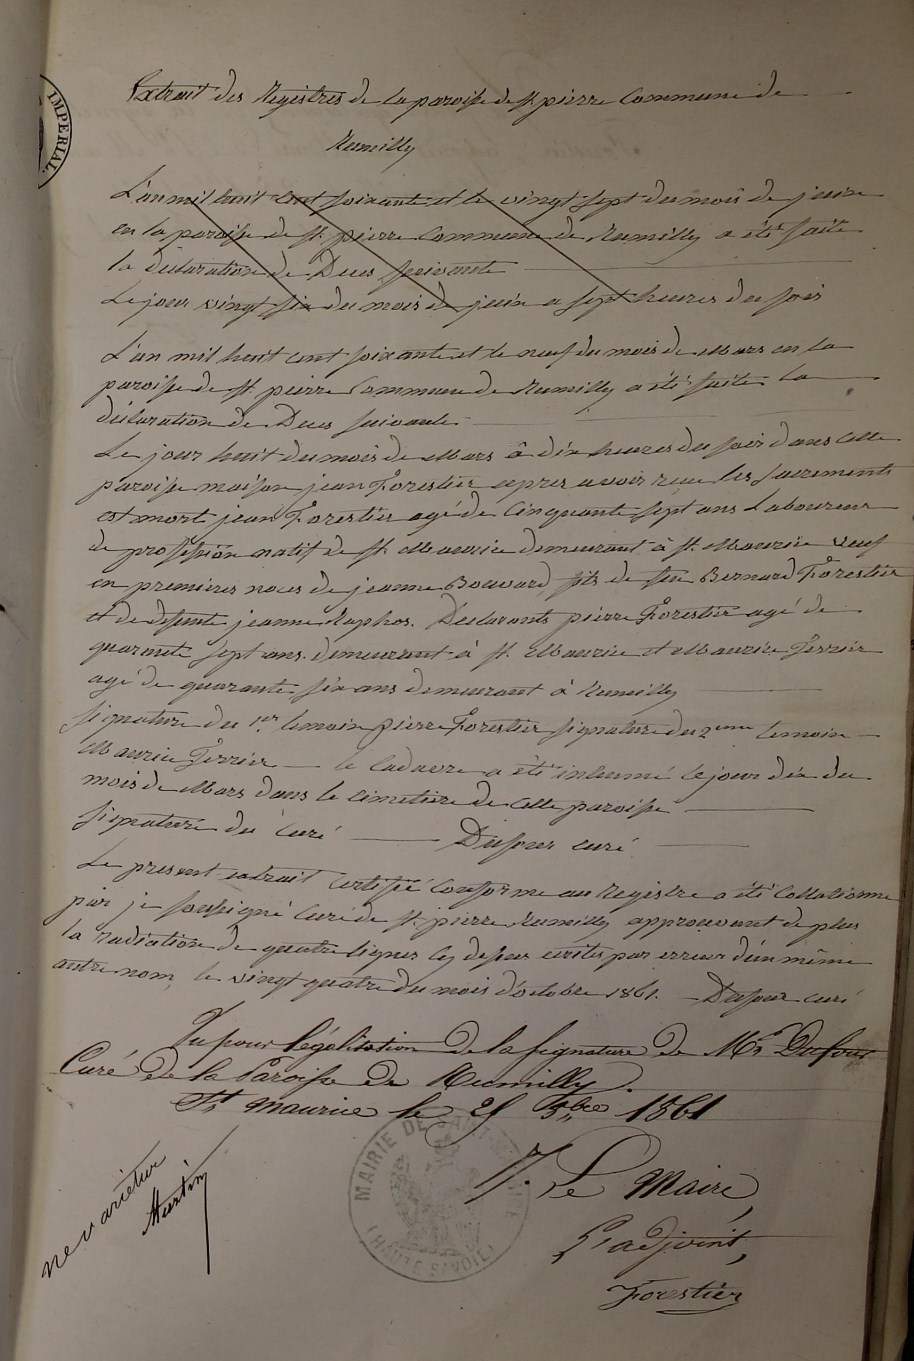 IMPERIAL.
Extrait des Registres de la paroisse de St. pierre Commune de
Rumilly
L'an mil huit cent soixante et le vingt sept du mois de juin
en la paroisse de St. pierre Commune de Rumilly a été faite
la déclaration de Deces suivante
Le jour vingt six du mois de juin a sept heures du soir
L'an mil huit cent soixante et le neuf du mois de Mars en la
paroisse de St. pierre Commune de Rumilly a été faite la
déclaration de Deces suivante
Le jour huit du mois de Mars à dix heures du soir dans cette
paroisse maison jean Forestier apres avoir reçu les sacrements
est mort jean Forestier agé de Cinquante sept ans Laboureur
de profession natif de St. Maurice demeurant à St. Maurice veuf
en premieres noces de jeanne Bouvard, fils de feu Bernard Forestier
et de defunte jeanne Raphos. Déclarants pierre Forestier agé de
quarante sept ans demeurant à St. Maurice et Maurice Terrier
agé de quarante six ans demeurant à Rumilly
signature du 1er. temoin pierre Forestier signature du 2eme temoin
Maurice Terrier le Cadavre a été inhumé le jour dix du
mois de Mars dans le cimetière de cette paroisse
signature du Curé Dufour curé
Le present extrait certifié Conforme au Registre a été Collationné
par je soussigné Curé de St. pierre Rumilly approuvant de plus
la radiation de quatre lignes cy dessus écrites par erreur d'un même
autre nom, le vingt quatre du mois d'octobre 1861. Dufour curé
Vu pour Légalisation de la signature de Mr Dufour
Curé de la Paroisse de Rumilly.
St Maurice le 25 8bre 1861
MAIRIE DE SAINT
(HAUTE SAVOIE)
P. Le Maire,
L'adjoint,
Forestier
ne varietur
Martin